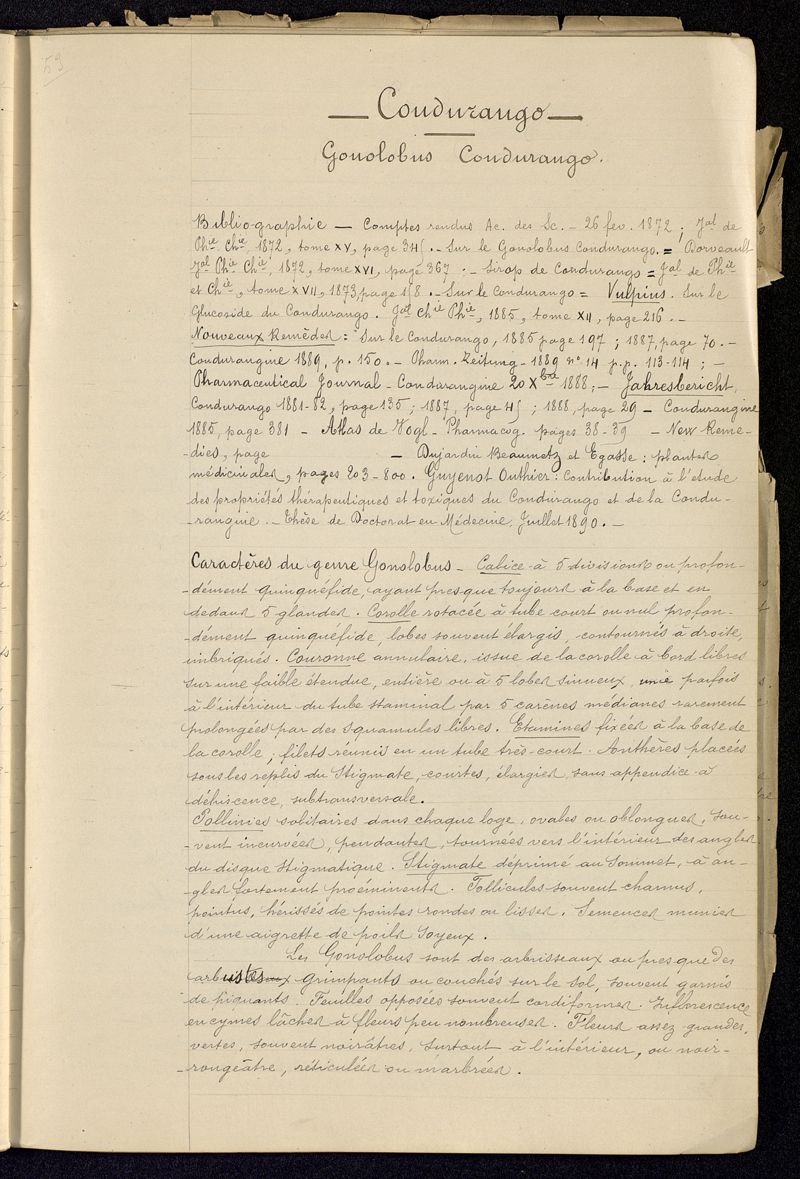 53
— Condurango —
Gonolobus Condurango.
Bibliographie — Comptes rendus Ac. des Sc. — 26 fev. 1872 ; Jal de
Phie Chie, 1872, tome XV, page 345. — Sur le Gonolobus Condurango. = Dorveault
Jal Phie Chie, 1872, tome XVI, page 367. — Sirop de Condurango = Jal de Phie
et Chie, tome XVII, 1873, page 158. — Sur le Condurango = Vulpius. Sur le
Glucoside du Condurango. Jal Chie Phie, 1885, tome XII, page 216. —
Nouveaux Remèdes : Sur le Condurango, 1885 page 197 ; 1887, page 70. —
Condurangine 1889, p. 150. — Pharm. Zeitung — 1889 n° 14 p.p. 113-114 ; —
Pharmaceutical Journal — Condurangine 20 Xbre 1888 ; — Jahresbericht,
Condurango 1881-82, page 135 ; 1887, page 45 ; 1888, page 29 — Condurangine
1885, page 381 — Atlas de Vogl — Pharmacog. pages 38-39 — New Reme-
dies, page — Dujardin Beaumetz et Egasse : plantes
médicinales, pages 203-800. Guyenot Outhier : Contribution à l'étude
des propriétés thérapeutiques et toxiques du Condurango et de la Condu-
-rangine. — Thèse de Doctorat en Médecine, Juillet 1890. —
Caractères du genre Gonolobus — Calice à 5 divisions ou profon-
-dément quinquéfide, ayant presque toujours à la base et en
dedans 5 glandes. Corolle rotacée à tube court ou nul profon-
-dément quinquéfide, lobes souvent élargis, contournés à droite,
imbriqués. Couronne annulaire, issue de la corolle à bord libres
sur une faible étendue, entière ou à 5 lobes sinueux, unie parfois
à l'intérieur du tube staminal par 5 carènes médianes rarement
prolongées par des squamules libres. Etamines fixées à la base de
la corolle ; filets réunis en un tube très-court. Anthères placées
sous les replis du Stigmate, courtes, élargies, sans appendice à
déhiscence, subtransversale.
Pollinies solitaires dans chaque loge, ovales ou oblongues, sou-
-vent incurvées, pendantes, tournées vers l'intérieur des angles
du disque stigmatique. Stigmate déprimé au sommet, à an-
gles fortement proéminents. Follicules souvent charnus,
pointus, hérissés de pointes rondes ou lisses. Semences munies
d'une aigrette de poils soyeux.
Les Gonolobus sont des arbrisseaux ou presque des
arbustes grimpants ou couchés sur le sol, souvent garnis
de piquants. Feuilles opposées souvent cordiformes. Inflorescence
en cymes lâches à fleurs peu nombreuses. Fleurs assez grandes,
vertes, souvent noirâtres, surtout à l'intérieur, ou noir-
-rougeâtre, réticulées ou marbrées.